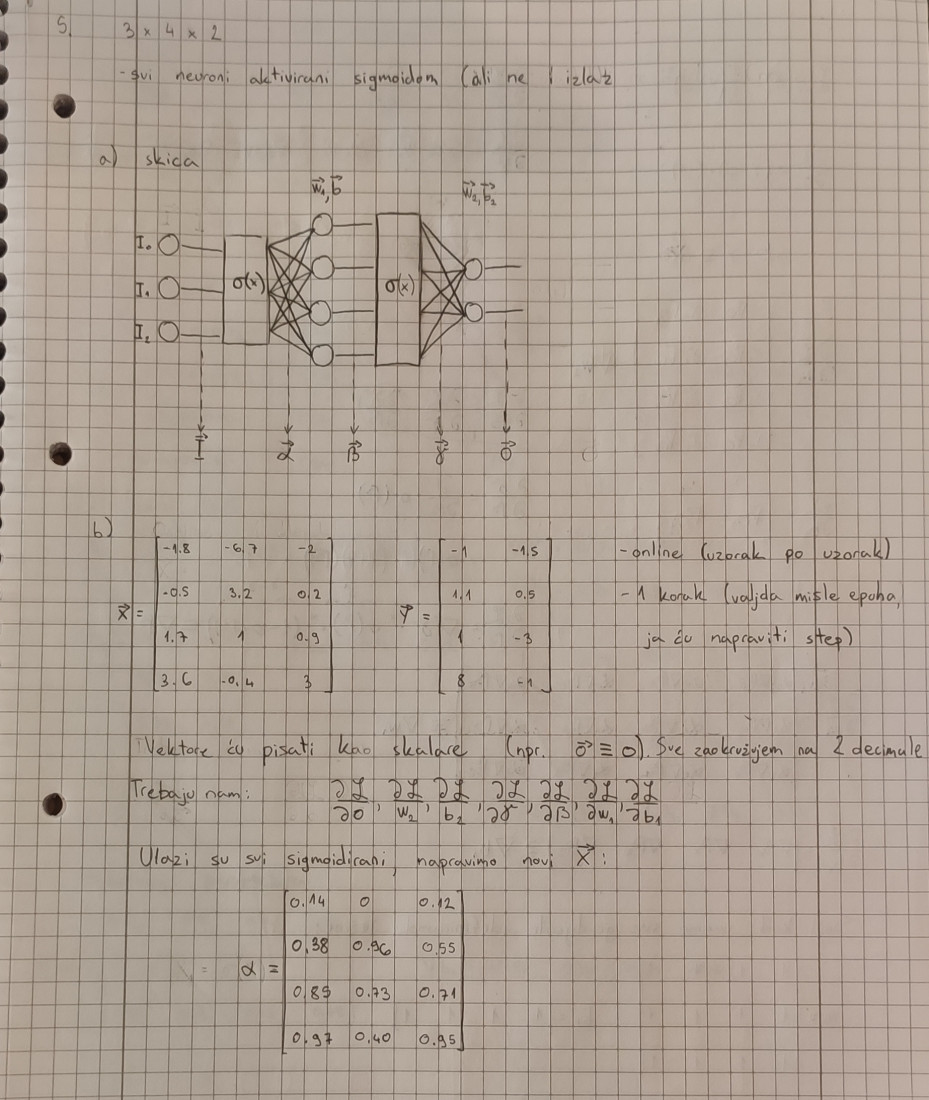 5. 3 × 4 × 2
- svi neuroni aktivirani sigmoidom (ali ne i izlaz
a) skica
w⃗₁, b⃗ w⃗₂, b⃗₂
I₀
I₁ σ(x) σ(x)
I₂
I⃗ α⃗ β⃗ γ⃗ o⃗
b)
-1.8 -6,7 -2 -1 -1,5 - online (uzorak po uzorak)
X⃗ = -0.5 3.2 0.2 Y⃗ = 1,1 0,5 - 1 korak (valjda misle epoha,
1.7 1 0.9 1 -3 ja ću napraviti step)
3.6 -0.4 3 8 -1
Vektore ću pisati kao skalare (npr. o⃗ ≡ o). Sve zaokružujem na 2 decimale
Trebaju nam: ∂ℒ/∂o, ∂ℒ/w₂, ∂ℒ/b₂, ∂ℒ/∂γ, ∂ℒ/∂β, ∂ℒ/∂w₁, ∂ℒ/∂b₁
Ulazi su svi sigmoidirani, napravimo novi X⃗:
0.14 0 0.12
0,38 0.96 0,55
α =
0,85 0.73 0.71
0.97 0,40 0.95